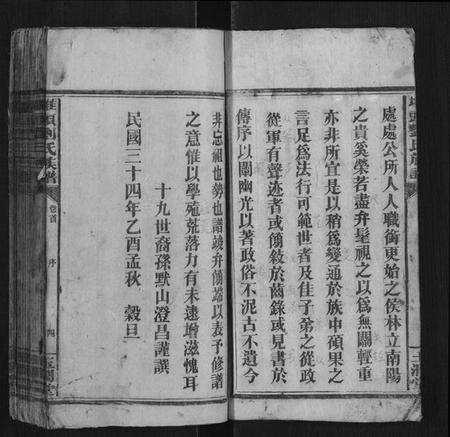 處處公所人人職銜更始之侯林立南陽
之貴奚榮若盡弁髦視之以爲無關輕重
亦非所宜是以稍爲變通於族中碩果之
言足爲法行可範世者及佳子弟之從政
從軍有聲迹者或飾敘於齒錄或見書於
傳序以闡幽光以著政俗不泥古不遺今
非忘祖也勢也譜竣弁簡端以表予修譜
之意惟以學殖荒落力有未逮增滋愧耳
十九世裔孫默山澄昌謹撰
民國三十四年乙酉孟秋 穀旦
頭劉氏族譜
卷首
序
四